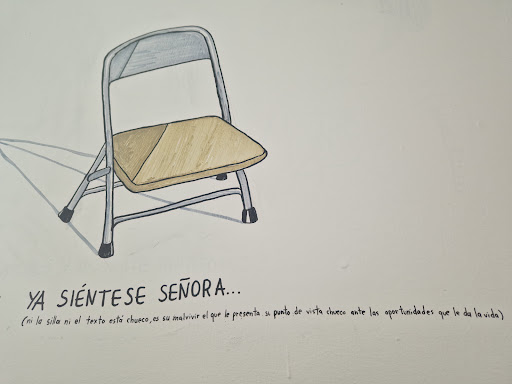 YA SIÉNTESE SEÑORA...
(ni la silla ni el texto está chueco, es su malvivir el que le presenta su punto de vista chueco ante las oportunidades que le da la vida)